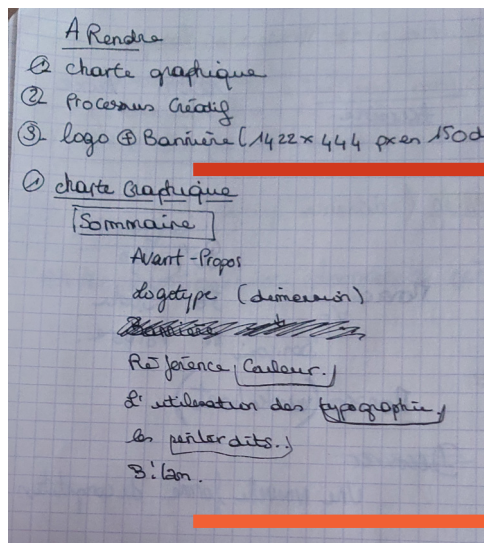 A Rendre
① charte graphique
② Processus Créatif
③ logo ⊕ Bannière (1422 x 444 px en 150d
① charte Graphique
Sommaire
Avant-Propos
Logotype (dimension)
Référence Couleur.
L'utilisation des typographie.
les interdits.
Bilan.